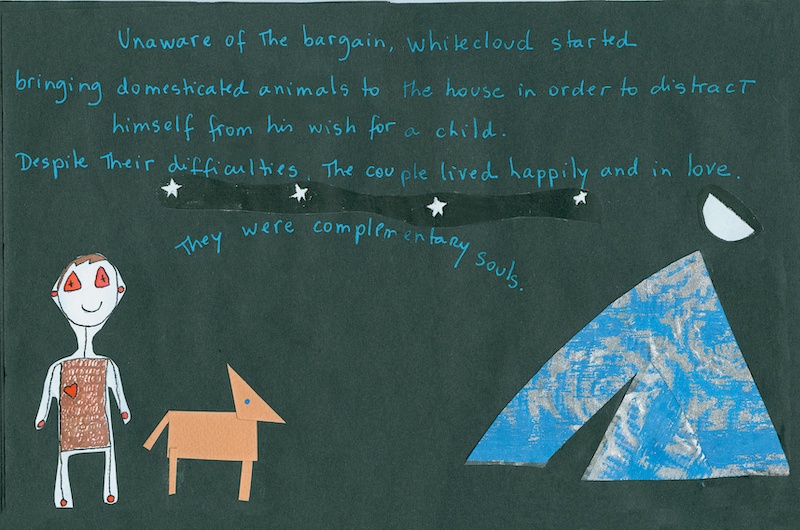 Unaware of the bargain, Whitecloud started
bringing domesticated animals to the house in order to distract
himself from his wish for a child.
Despite their difficulties, the couple lived happily and in love.
They were complementary souls.